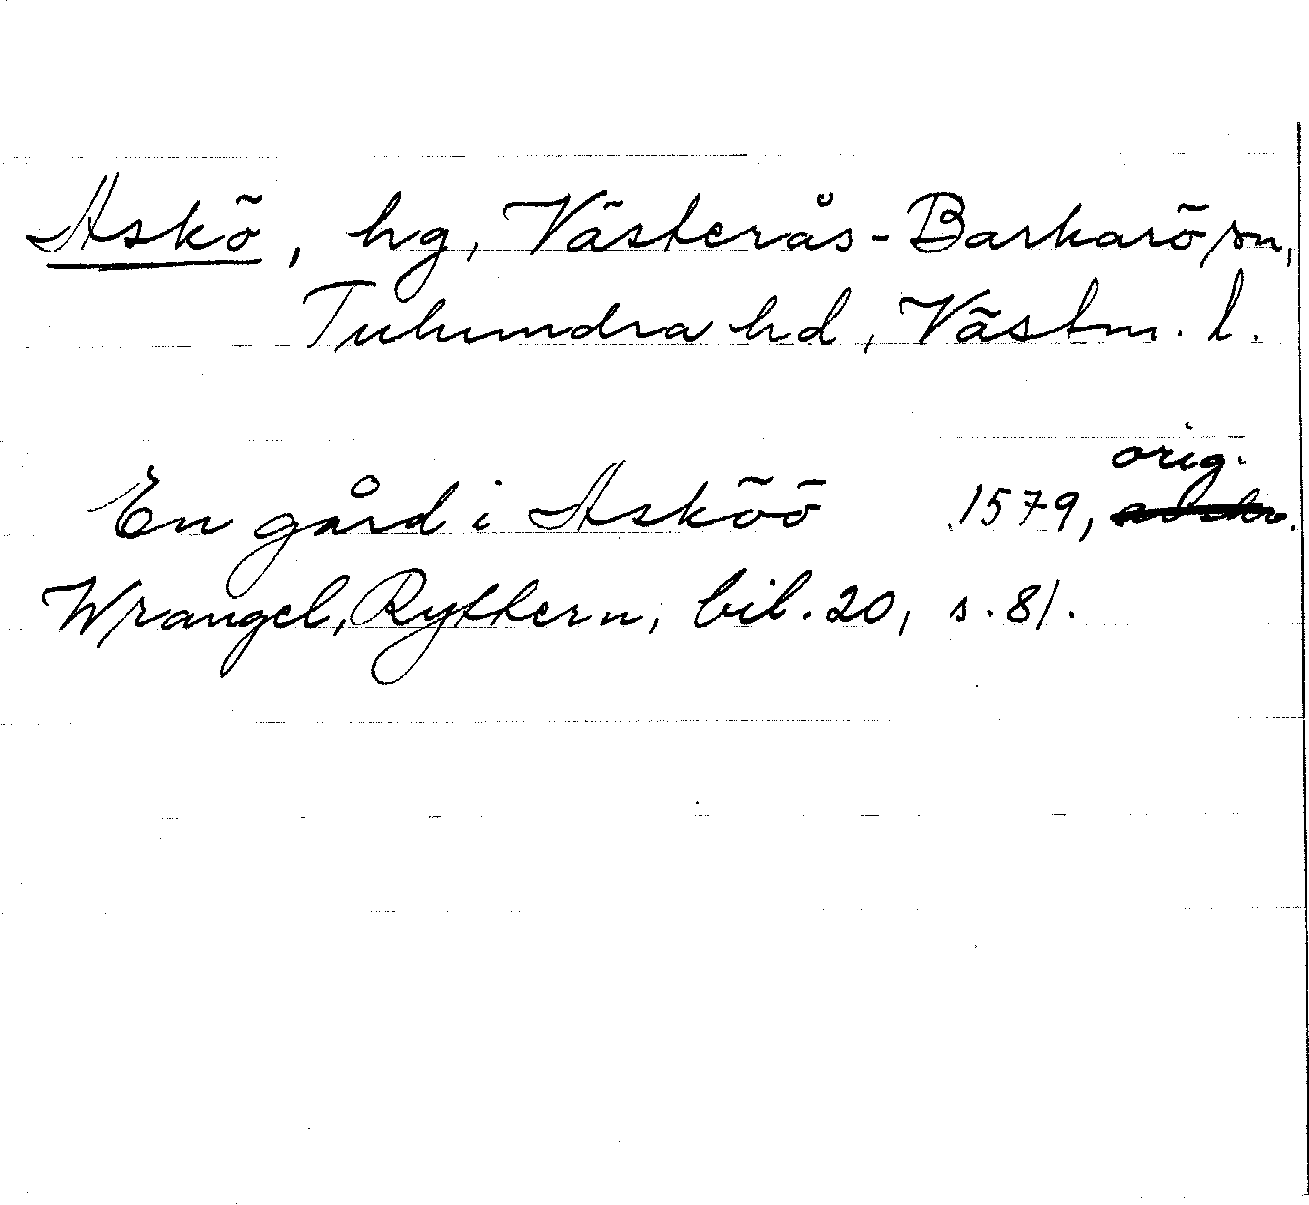 Askö, hg, Västerås-Barkarö sn,
Tuhundra hd, Västm. l.
orig.
En gård i Asköö 1579,
Wrangel, Ryttern, bil. 20, s. 81.